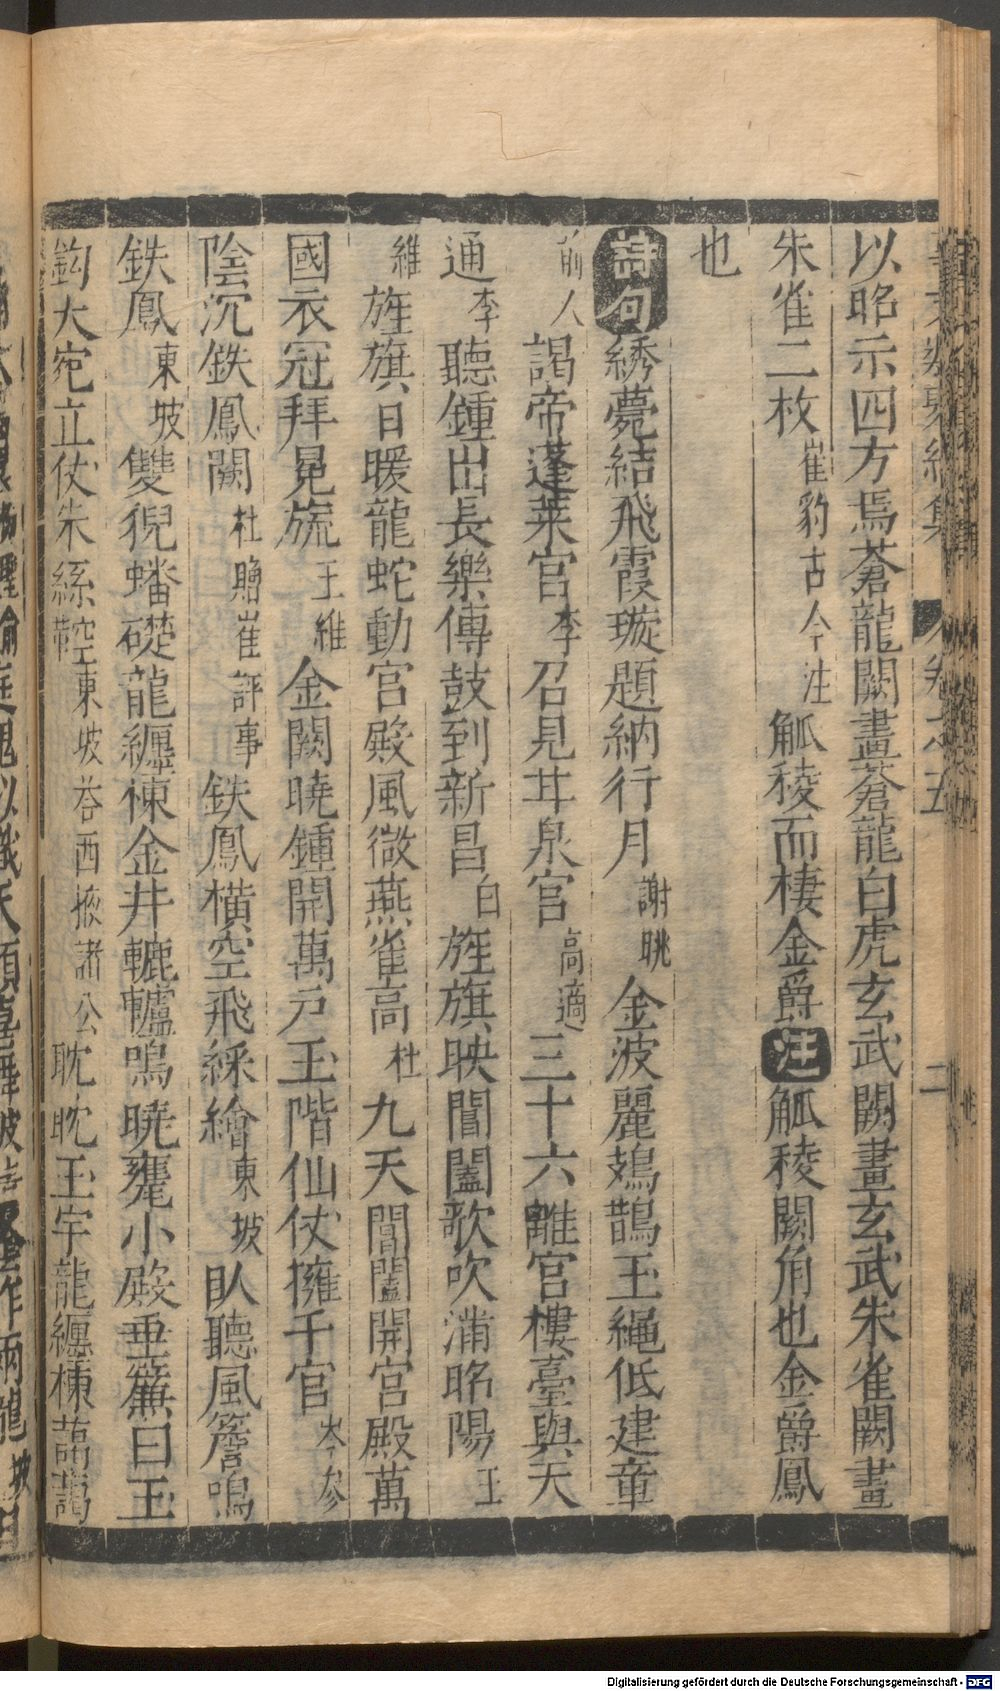 以昭示四方焉蒼龍闕畫蒼龍白虎玄武闕畫玄武朱雀闕畫
朱雀二枚崔豹古今注觚稜而棲金爵注觚稜闕角也金爵鳳
也
詩句綉甍結飛霞璇題納行月謝眺金波麗鳷鵲玉繩低建章
前人謁帝蓬萊宮李召見甘泉宮高適三十六離宮樓臺與天
通李聽鍾出長樂傳鼓到新昌白旌旗映閶闔歌吹滿昭陽王
維旌旗日暖龍蛇動宮殿風微燕雀高杜九天閶闔開宮殿萬
國衣冠拜冕旒王維金闕曉鍾開萬戶玉階仙仗擁千官岑參
陰沉鉄鳳闕杜贈崔評事鉄鳳橫空飛綵繪東坡臥聽風簷鳴
鉄鳳東坡雙猊蟠礎龍纏棟金井轆轤鳴曉甕小殿垂簾白玉
鈎大宛立仗朱絲鞚東坡荅西掖諸公耽耽玉宇龍纏棟藹藹
Digitalisierung gefördert durch die Deutsche Forschungsgemeinschaft - DFG